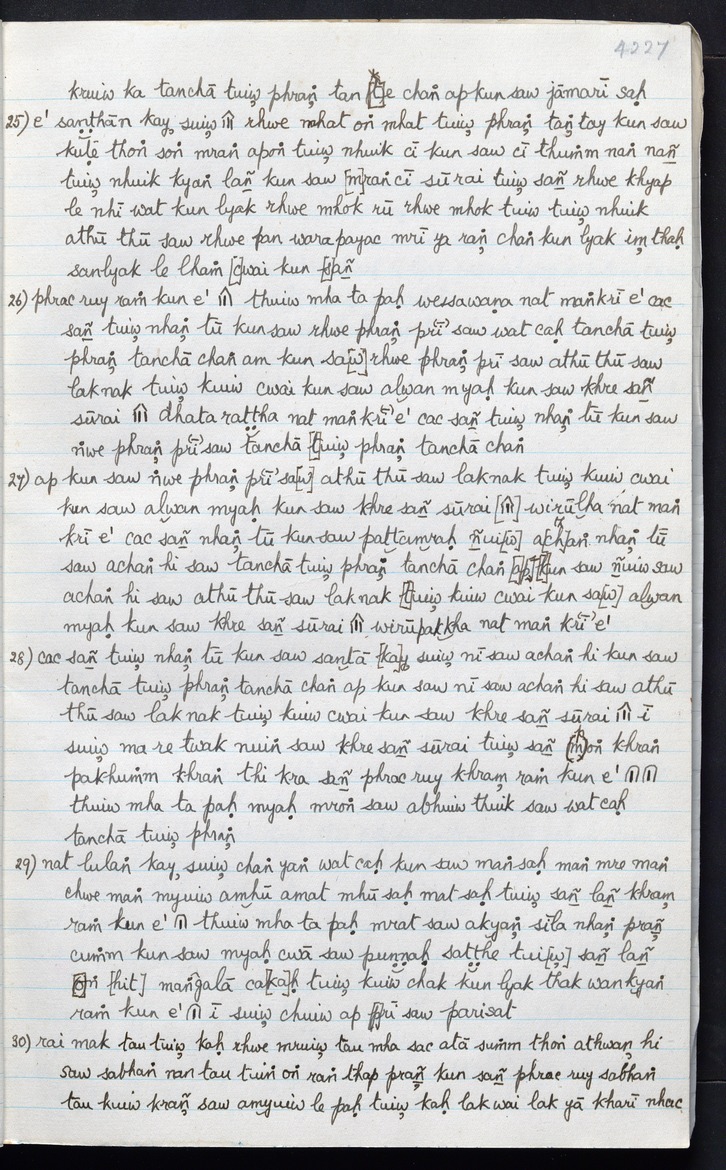 4227
kruiw ka tanchā tuiw̦ phraṅ̦ tan [t]e chaṅ ap kun saw jāmarī saḥ
25) e' saṇṭhān kay̦ suiw̦ ၊၊ rhwe mhat oṅ mhat tuiw̦ phraṅ̦ taṅ̦ tay kun saw
kulẹ̄ thoṅ soṅ mraṅ apoṅ tuiw̦ nhuik cī kun saw cī thumṁ naṅ naññ
tuiw̦ nhuik kyaṅ laññ kun saw [m]raṅ cī sūrai tuiw̦ saññ rhwe khyap
le nhī wat kun lyak rhwe mhok rū rhwe mhok tuiw tuiw̦ nhuik
athū thū saw rhwe pan warapayac mrī ya raṅ̦ chaṅ kun lyak im̦ thaḥ
sanlyak le lhaṁ [c]wai kun [s]aññ
26) phrac ruy raṁ kun e' ၊၊ thuiw mha ta paḥ wessawaṇa nat maṅkrī e' cac
saññ tuiw̦ nhaṅ̦ tū kun saw rhwe phraṅ̦ prī saw wat caḥ tanchā tuiw̦
phraṅ̦ tanchā chaṅ am kun sa[w] rhwe phraṅ̦ prī saw athū thū saw
laknak tuiw̦ kuiw cwai kun saw alwan myaḥ kun saw khre saññ
sūrai ၊၊ dhataraṭṭha nat maṅkrī e' cac saññ tuiw̦ nhaṅ̦ tū kun saw
ṅwe phraṅ̦ prī saw tanchā [t]uiw̦ phraṅ̦ tanchā chaṅ
27) ap kun saw ṅwe phraṅ̦ prī sa[w] athū thū saw laknak tuiw̦ kuiw cwai
kun saw alwan myaḥ kun saw khre saññ sūrai [၊၊] wirūḷha nat maṅ
krī e' cac saññ nhaṅ̦ tū kun saw pattamraḥ ñui[w] achaṅ nhaṅ̦ tū
saw achaṅ hi saw tanchā tuiw̦ phraṅ̦ tanchā chaṅ [ap] [k]un saw ñuiw saw
achaṅ hi saw athū thū saw laknak [t]uiw̦ kuiw cwai kun sa[w] alwan
myaḥ kun saw khre saññ sūrai ၊၊ wirūpakkha nat maṅ krī e'
28) cac saññ tuiw̦ nhaṅ̦ tū kun saw santā [kay̦] suiw̦ nī saw achaṅ hi kun saw
tanchā tuiw̦ phraṅ̦ tanchā chaṅ ap kun saw nī saw achaṅ hi saw athū
thū saw lak nak tuiw̦ kuiw cwai kun saw khre saññ sūrai ၊၊ ī
suiw̦ ma re twak nuiṅ saw khre saññ sūrai tuiw̦ saññ (m)oṅ khraṅ
pakhumṁ khraṅ thi kra saññ phrac ruy khram̦ raṁ kun e' ၊၊ ၊၊
thuiw mha ta paḥ myaḥ mroṅ saw abhuiw thuik saw wat caḥ
tanchā tuiw̦ phraṅ̦
29) nat lulaṅ kay̦ suiw̦ chaṅ yaṅ wat caḥ kun saw maṅ saḥ maṅ mre maṅ
chwe maṅ myuiw amhū amat mhū saḥ mat saḥ tuiw̦ saññ laññ khram̦
raṁ kun e' ၊ thuiw mha ta paḥ mrat saw akyaṅ̦ sīla nhaṅ̦ praññ̦
cumṁ kun saw myaḥ cwā saw puṇṇaḥ saṭṭhe tui[w̦] saññ laññ
[o]ṅ [hit] maṅgalā ca[ka]ḥ tuiw̦ kuiw chak kun lyak thak wan kyaṅ
raṁ kun e' ၊ ī suiw̦ chuiw ap [p]rī saw parisat
30) rai mak tau tuiw̦ kaḥ rhwe mruiw̦ tau mha sac atā sumṁ thoṅ athwaṅ̦ hi
saw sabhaṅ nan tau tuiṅ oṅ raṅ thap praññ̦ kun saññ phrac ruy sabhaṅ
tau kuiw kraññ̦ saw amyuiw le paḥ tuiw̦ kaḥ lak wai lak yā kharī nhac